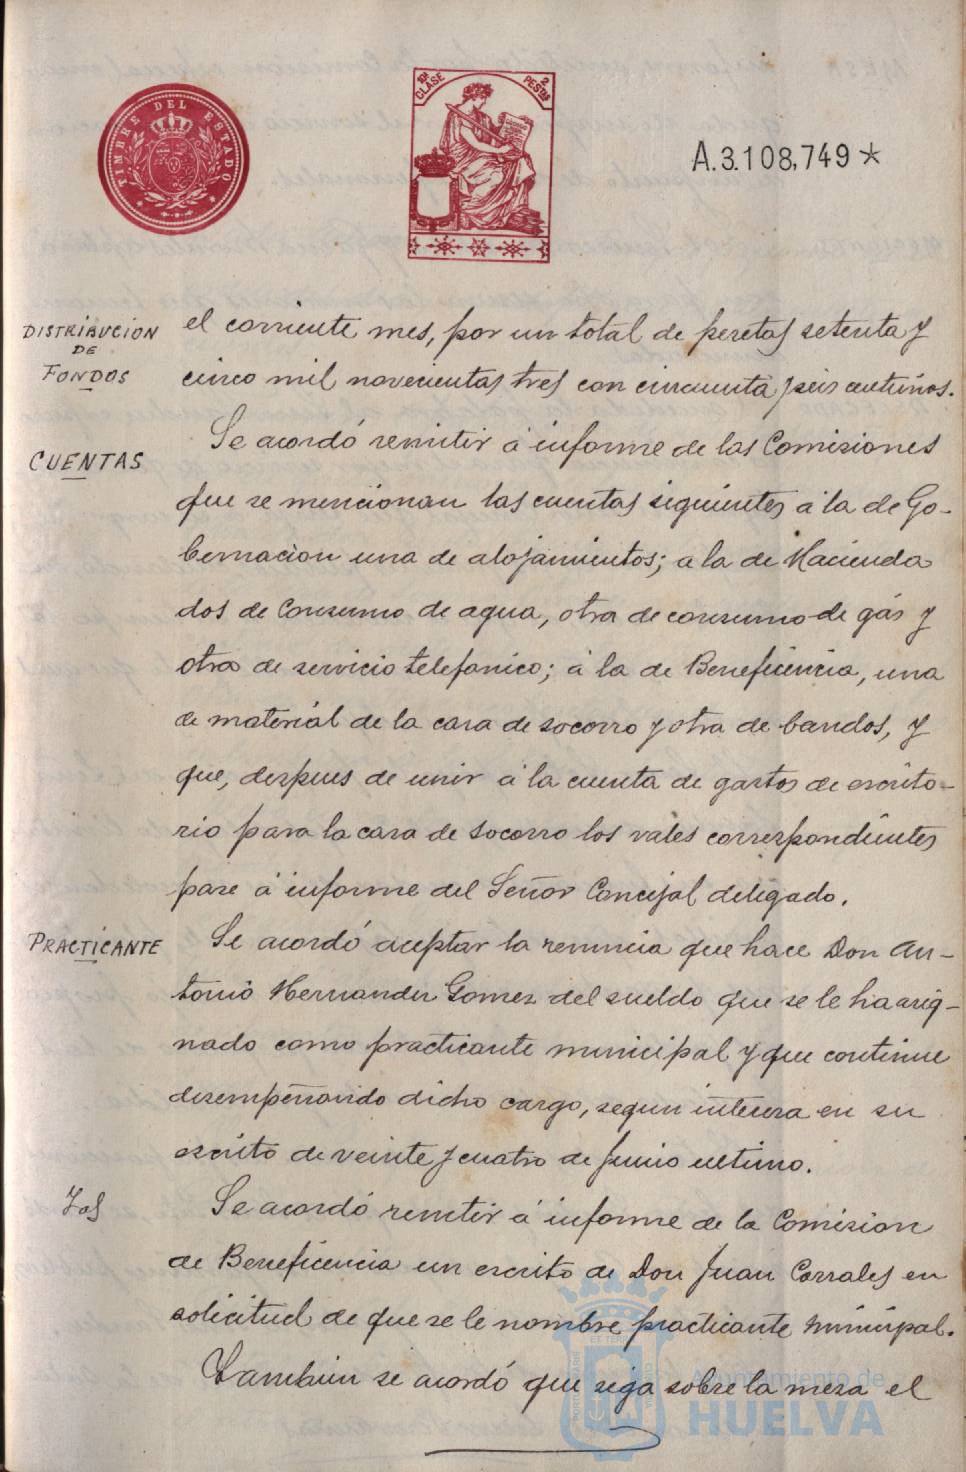 TIMBRE DEL ESTADO
10ª CLASE
2 PESTAS
A.3.108,749*
DISTRIBUCION
DE
FONDOS
el corriente mes, por un total de pesetas setenta y
cinco mil novecientas tres con cincuenta y seis centimos.
CUENTAS
Se acordó remitir á informe de las Comisiones
que se mencionan las cuentas siguientes á la de Go-
bernacion una de alojamientos; a la de Hacienda
dos de Consumo de agua, otra de consumo de gas y
otra de servicio telefonico; á la de Beneficencia, una
de material de la casa de socorro y otra de bandos, y
que, despues de unir á la cuenta de gastos de escrito-
rio para la casa de socorro los vales correspondientes
pase á informe del Señor Concejal delegado.
PRACTICANTE
Se acordó aceptar la renuncia que hace Don An-
tonio Hernandez Gomez del sueldo que se le ha asig-
nado como practicante municipal y que continue
desempeñando dicho cargo, segun interesa en su
escrito de veinte y cuatro de Junio ultimo.
Se acordó remitir á informe de la Comision
de Beneficencia un escrito de Don Juan Corrales en
solicitud de que se le nombre practicante municipal.
Tambien se acordó que siga sobre la mesa el
Ayuntamiento de
HUELVA